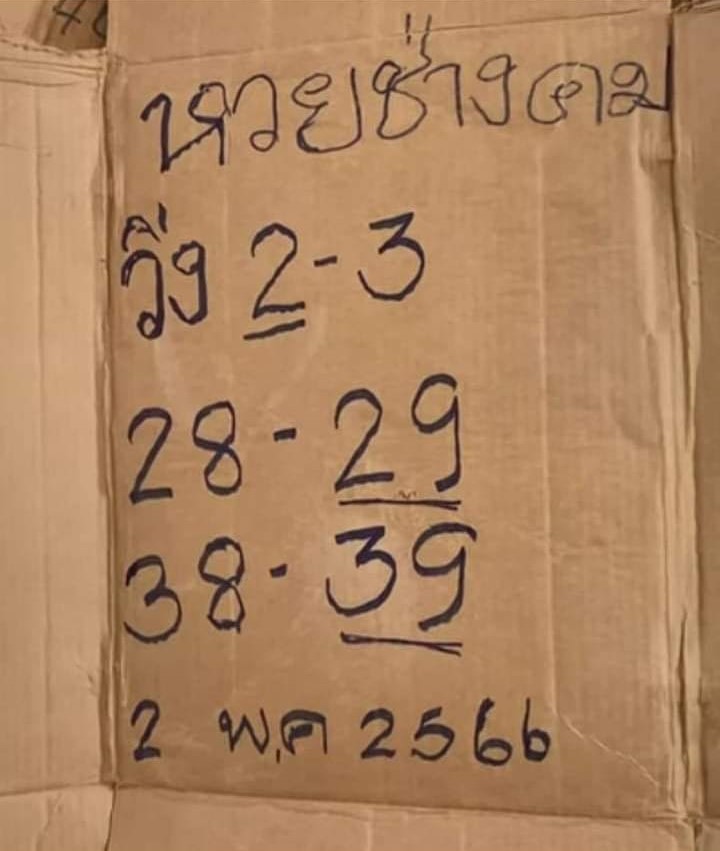 หวยช่างคม
วิ่ง 2-3
28-29
38-39
2 พ.ค 2566